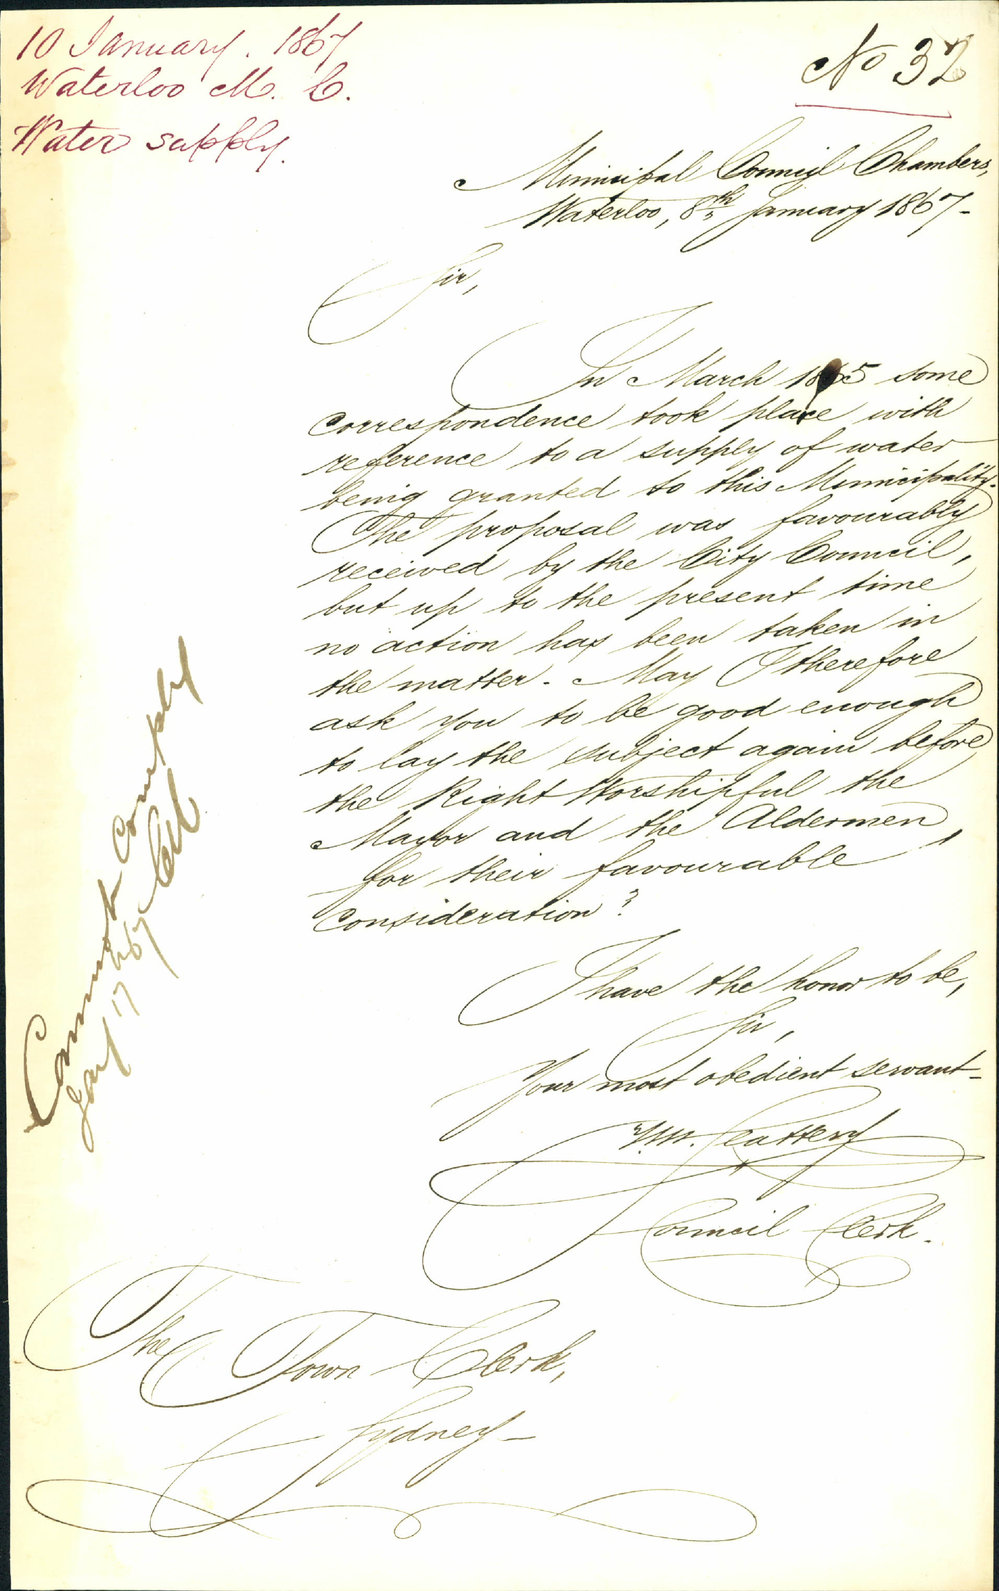 10 January. 1867
Waterloo M. C.
Water supply.
No 32
Municipal Council Chambers,
Waterloo, 8th January 1867-
Sir,
In March 1865 some
correspondence took place with
reference to a supply of water
being granted to this Municipality.
The proposal was favourably
received by the City Council,
but up to the present time
no action has been taken in
the matter. May I therefore
ask you to be good enough
to lay the subject again before
the Right Worshipful the
Mayor and the Aldermen,
for their favourable
consideration?
I have the honor to be,
Sir,
Your most obedient servant-
Wm. Cattery
Council Clerk.
The Town Clerk,
Sydney-
Cannot Comply
Jany 17/67